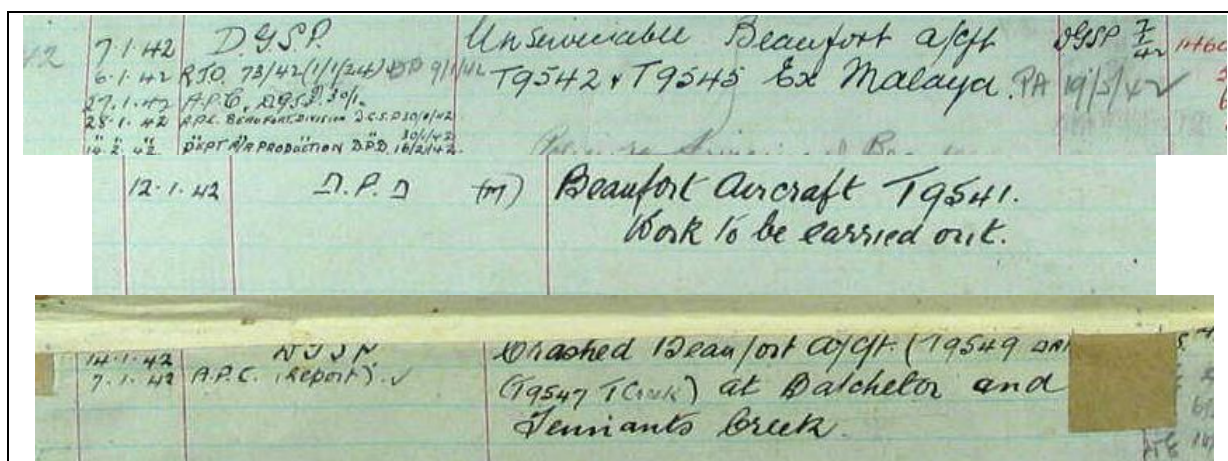 42 7.1.42 D.G.S.P. Unserviceable Beaufort a/cft DGSP 7/2/42
6.1.42 R.T.O. 73/42(1/1/24) DP 9/1/42 T9542 & T9545 Ex Malaya. PA 19/5/42
27.1.42 A.P.C. D.G.S.P. 30/1.
28.1.42 A.P.C. BEAUFORT DIVISION D.G.S.P 30/1/42
" " " 30/1/42
14.2.42 DEPT A/A PRODUCTION D.P.D. 16/2/42.
12.1.42 D.P.D (M) Beaufort Aircraft T9541.
Work to be carried out.
14.1.42 Crashed Beaufort a/cft. (T9549
7.1.42 A.P.C. (Report). (T9547 T Creek) at Batchelor and
Tennants Creek.